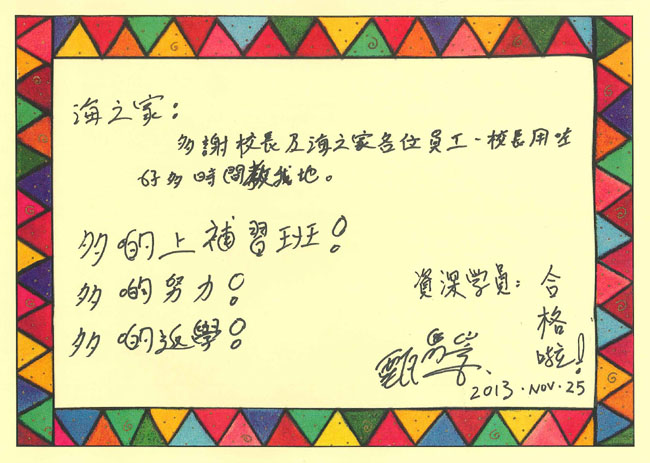 海之家：
多謝校長及海之家各位員工，校長用咗
好多時間教我地。
多啲上補習班！
多啲努力！
多啲返學！
資深学員：
合格啦！
2013.NOV.25